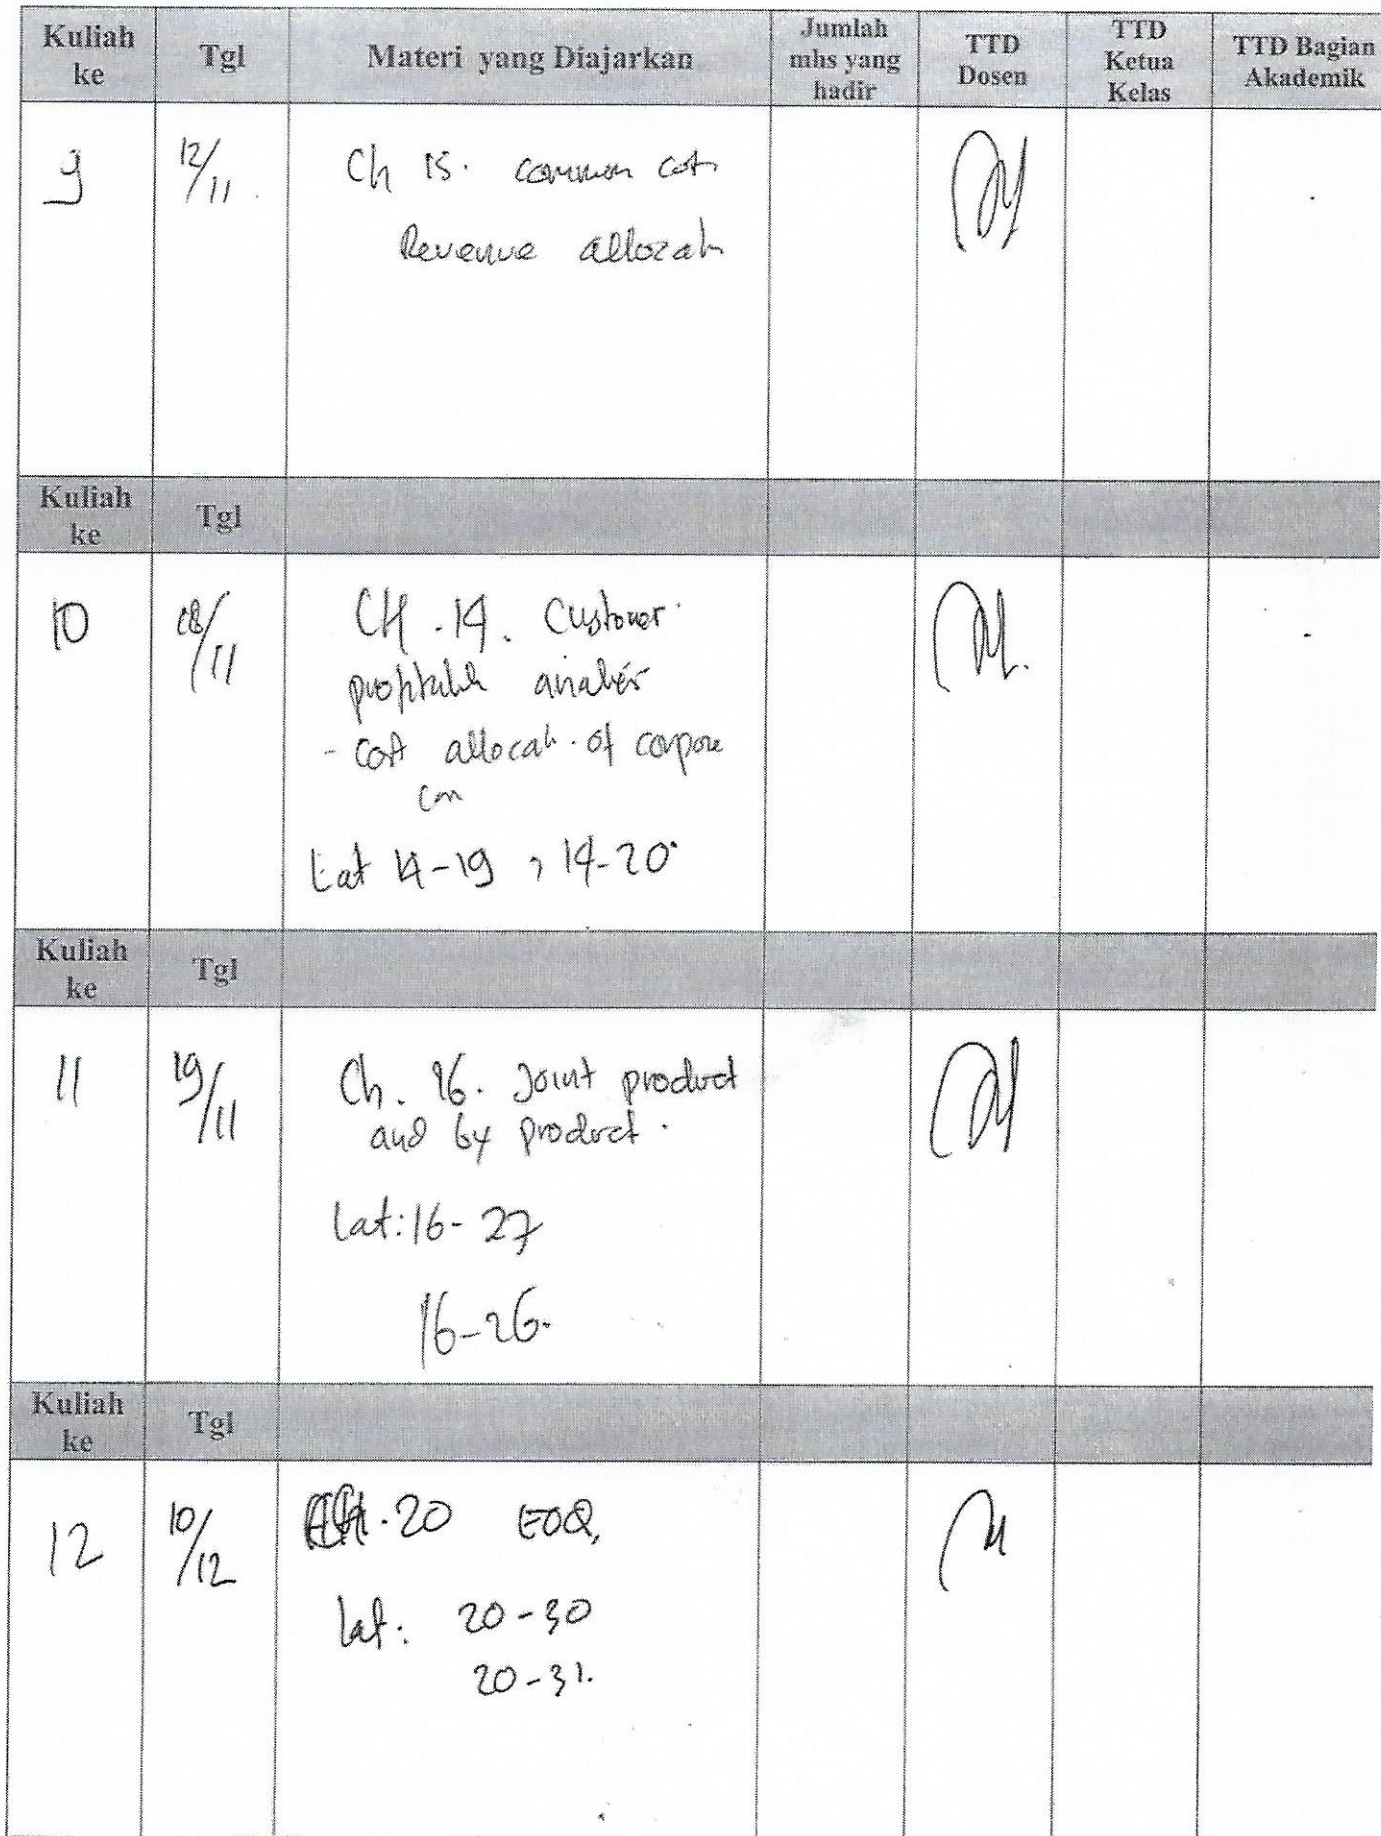 Kuliah ke Tgl Materi yang Diajarkan Jumlah mhs yang hadir TTD Dosen TTD Ketua Kelas TTD Bagian Akademik
9 12/11 Ch 15. common
Revenue
Kuliah ke Tgl
10 /11 CH. 14. Customer
- Cost allocat. of
Lat 14-19, 14-20
Kuliah ke Tgl
11 19/11 Ch. 16. Joint product
and by product.
Lat: 16-27
16-26.
Kuliah ke Tgl
12 10/12 CH. 20 EOQ,
lat: 20-30
20-31.